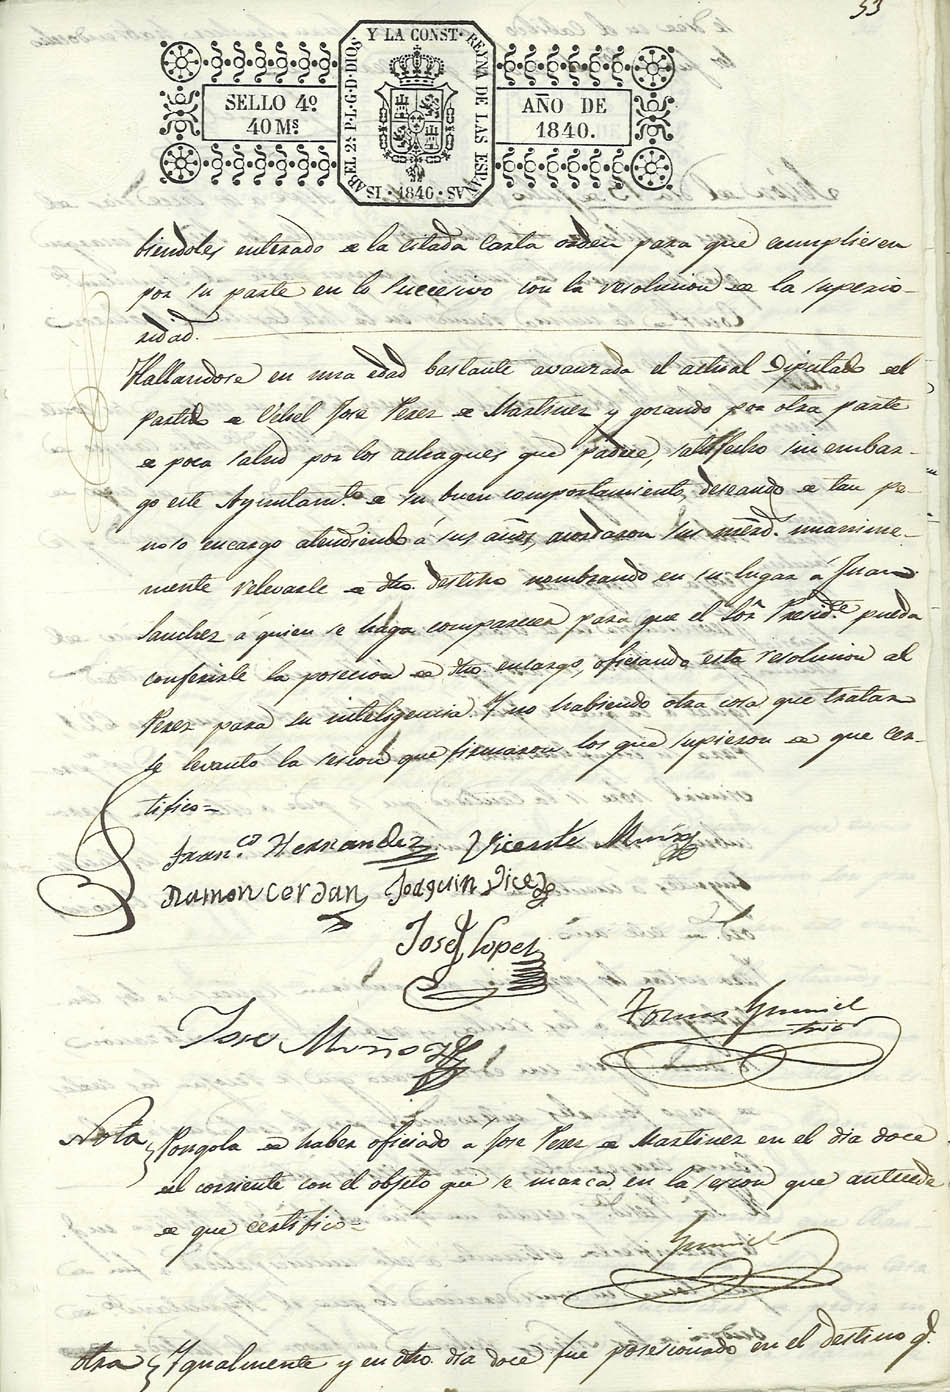 53
SELLO 4º
40 Mˢ
ISABEL 2ª P.L.G.D DIOS Y LA CONST. REYNA DE LAS ESPAÑAS
1840
AÑO DE
1840.
biendoles enterado de la citada Carta orden para que cumpliesen
por su parte en lo succesivo con la resolucion de la superio-
ridad.
Hallandose en una edad bastante avanzada el actual Diputado del
Partido de José Perez de Martinez y gozando por otra parte
de poca salud por los achaques que padece, satisfecho sin embar-
go este Ayuntamᵗᵒ de su buen comportamiento, deseando de tan pe-
noso encargo atendiendo á sus años, acordaron sus merd. unanime-
mente relevarle de dho. destino nombrando en su lugar á Juan
Sanchez á quien se haga comparecer para que el Sor. Presidᵗᵉ pueda
conferirle la posecion de dho. encargo, oficiando esta resolucion al
Perez para su inteligencia. Y no habiendo otra cosa que tratar
se levantó la sesion que firmaron los que supieron de que cer-
tifico=
Franᶜᵒ Hernandez Vicente Muñoz
Ramon Cerdan Joaquin
Jose Lopez
Jose Muñoz
Tomas
Nota Pongola de haber oficiado á Jose Perez de Martinez en el dia doce
del corriente con el objeto que se marca en la sesion que antecede
de que certifico=
otra Ygualmente y en dho. dia doce fue posesionado en el destino q.